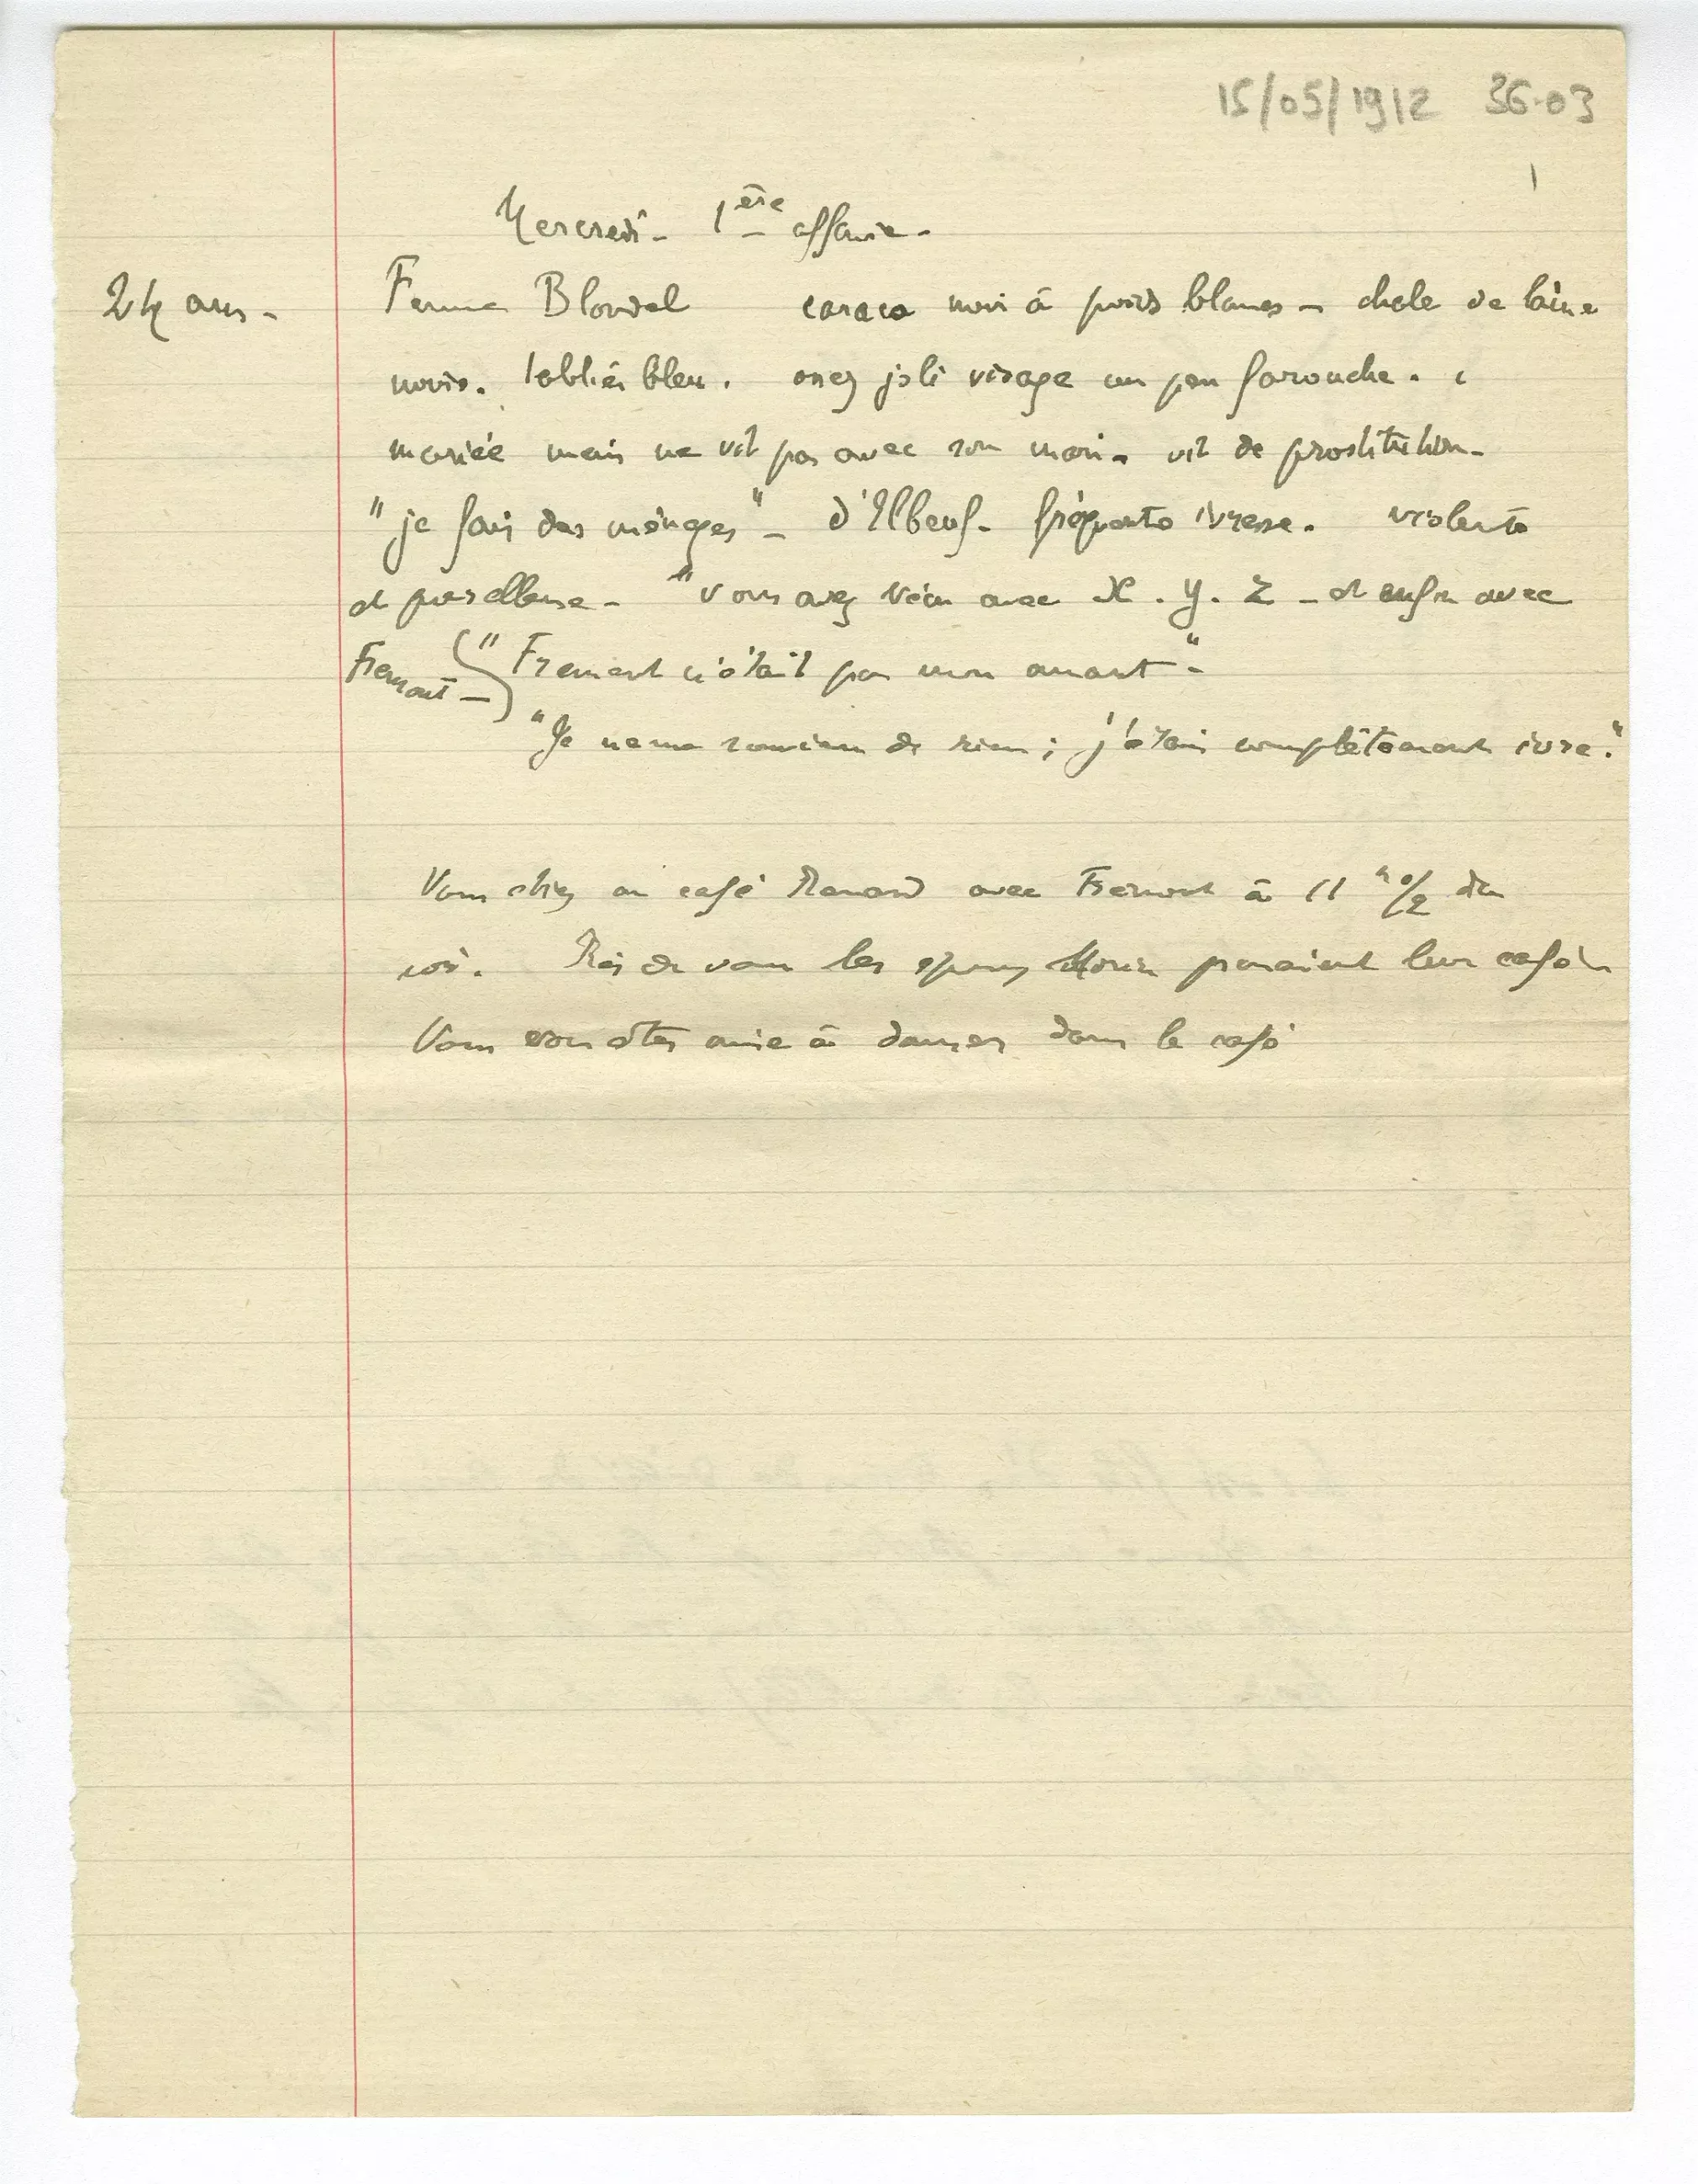 15/05/1912 36-03
1
Mercredi - 1ère affaire -
24 ans - Femme Blondel caraco noir à pois blancs - chale de laine
noir. tablier bleu. assez joli visage un peu farouche.
mariée mais ne vit pas avec son mari - vit de prostitution -
"je fais des ménages" - d'Elbeuf - fréquente ivresse. violente
et paresseuse - "vous avez vécu avec X. Y. Z - et enfin avec
Fremont - "Fremont n'était pas mon amant" -
"Je ne me souviens de rien ; j'étais complètement ivre."
Vous étiez au café Renard avec Fremont à 11 h 1/2 du
soir. Près de vous les époux Morin prenaient leur café
Vous vous êtes mise à danser dans le café